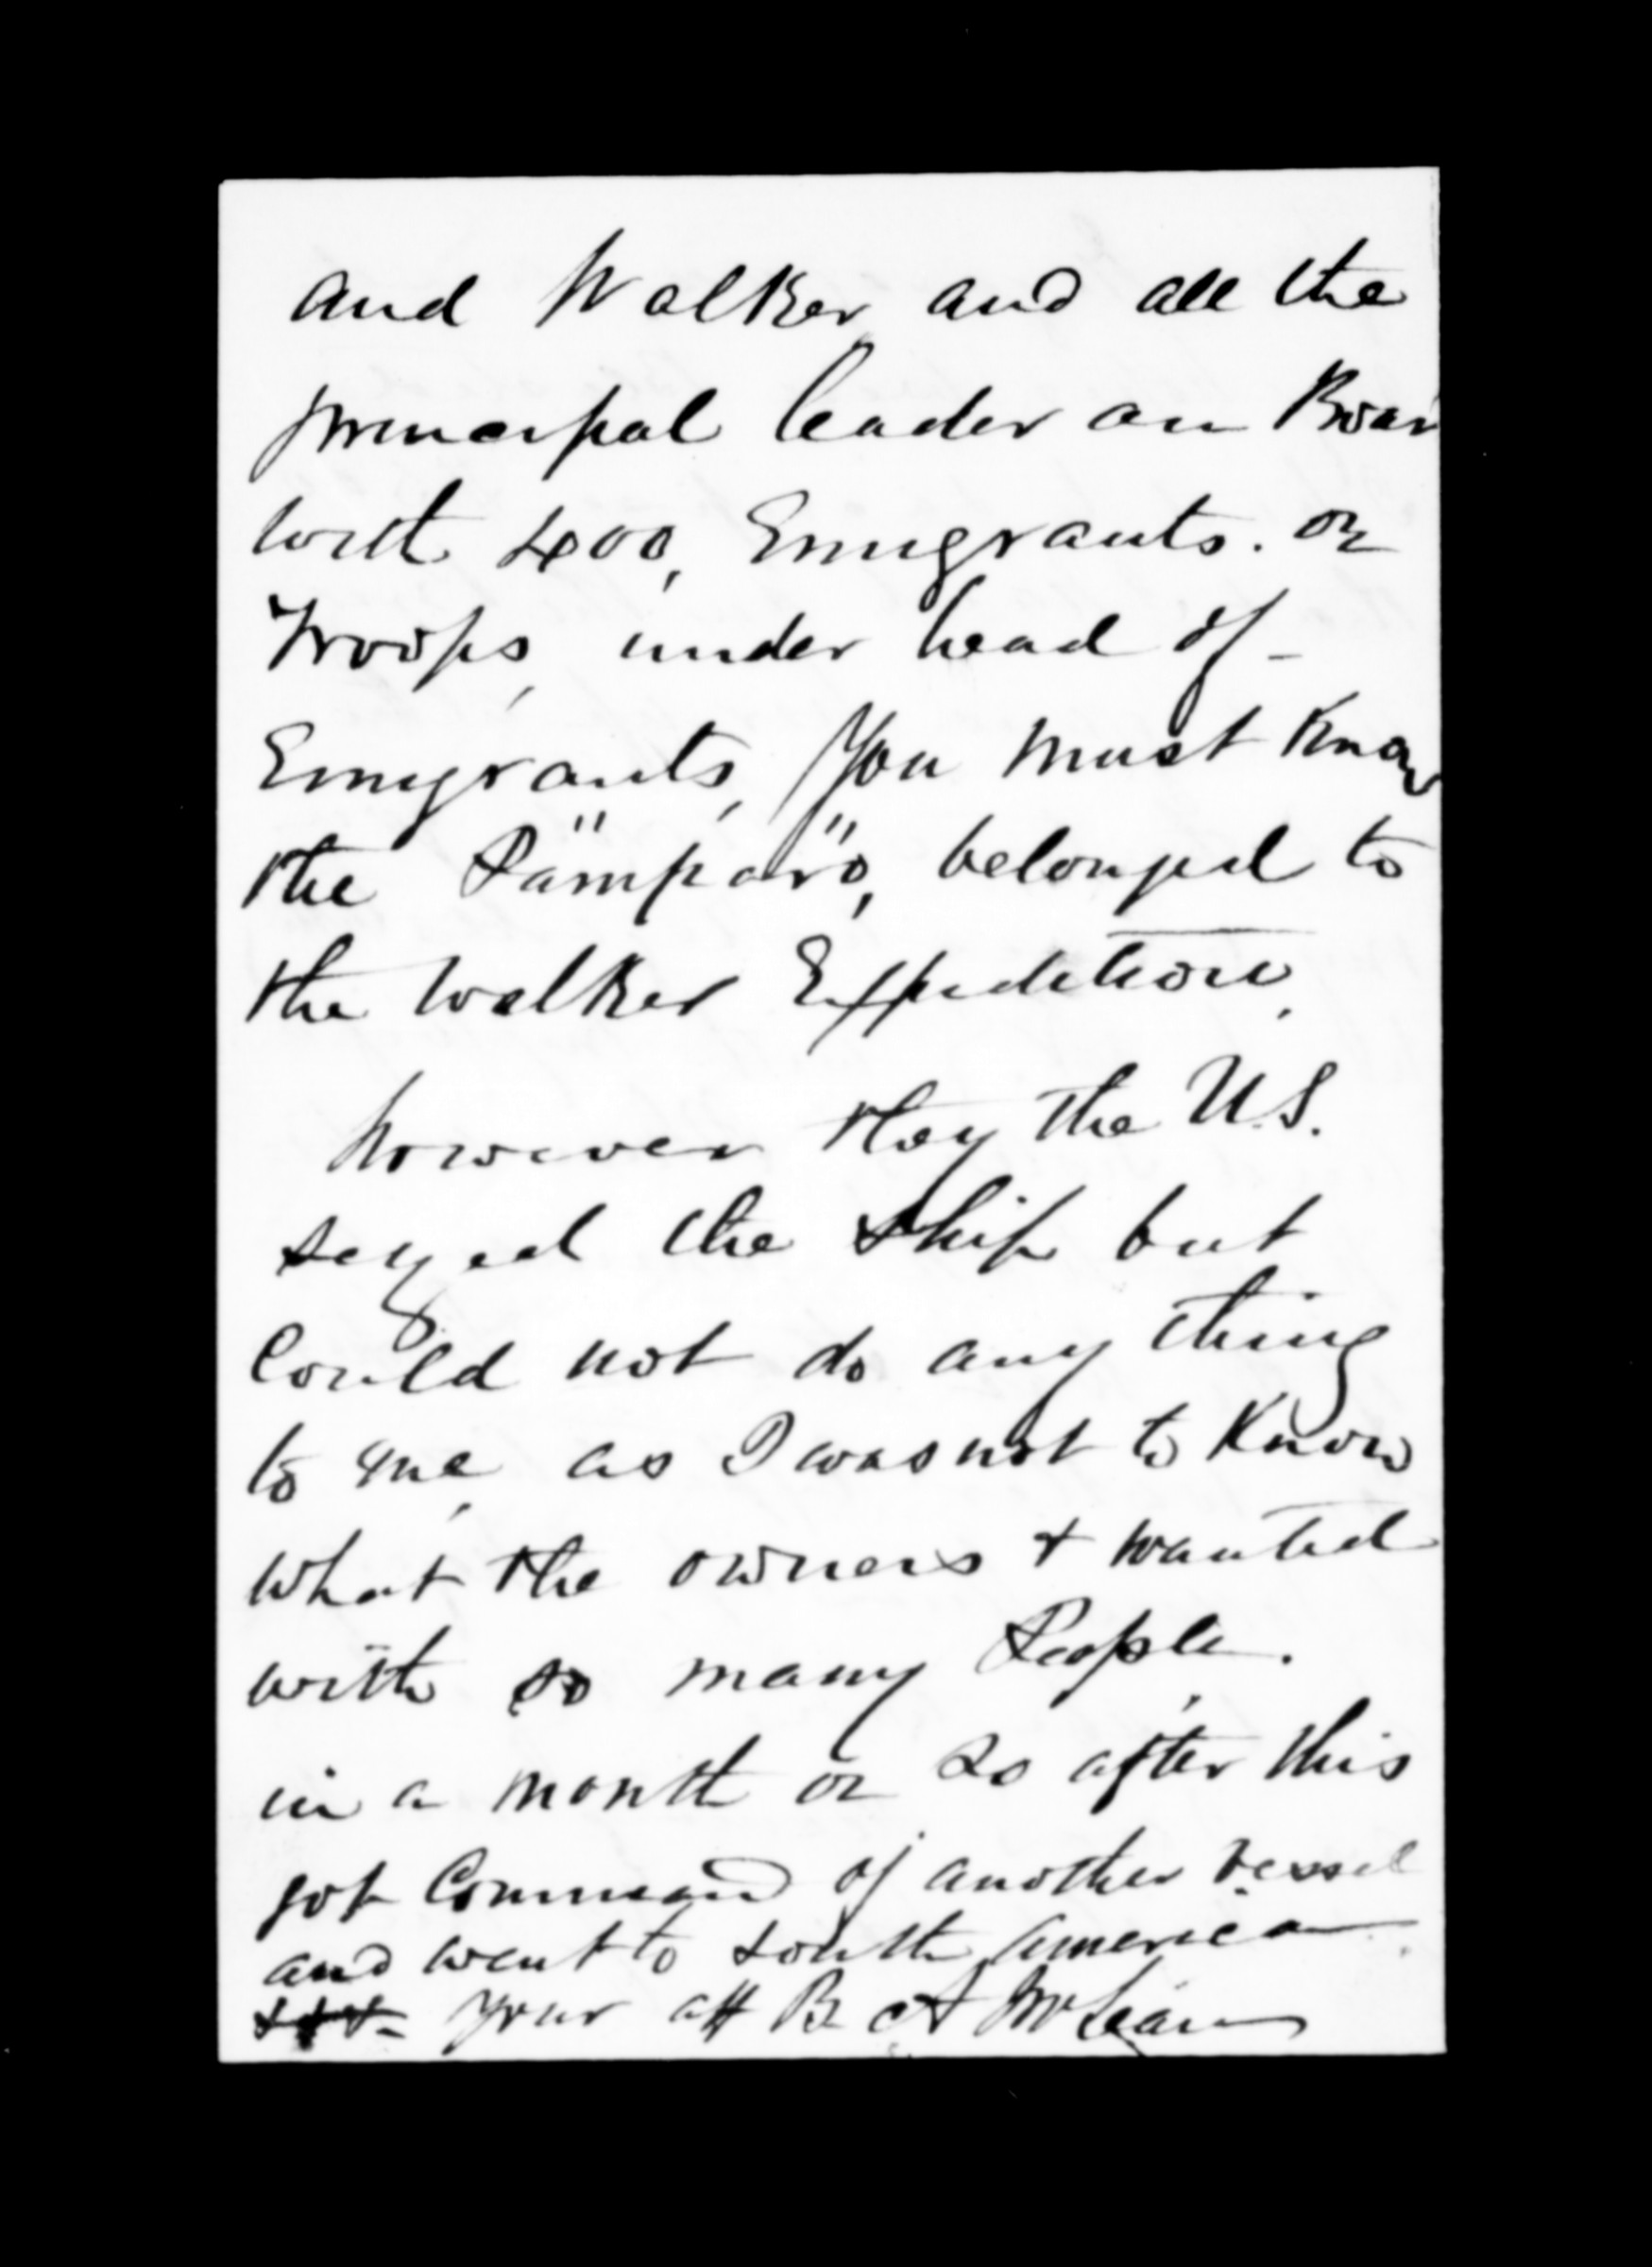 and Walker and all the
principal leader on Boar
with 400, Emigrants. or
Troops, under head of -
Emigrants, You must Know
the "Pamparo", belonged to
the Walker Expedition,
however they the U.S.
seyzed the Ship but
Could not do any thing
to me, as I was not to Know
what the owners + wanted
with so many People.
in a month or so after this
got Command of another vessel
and went to South America.
Your aff B. A McLean